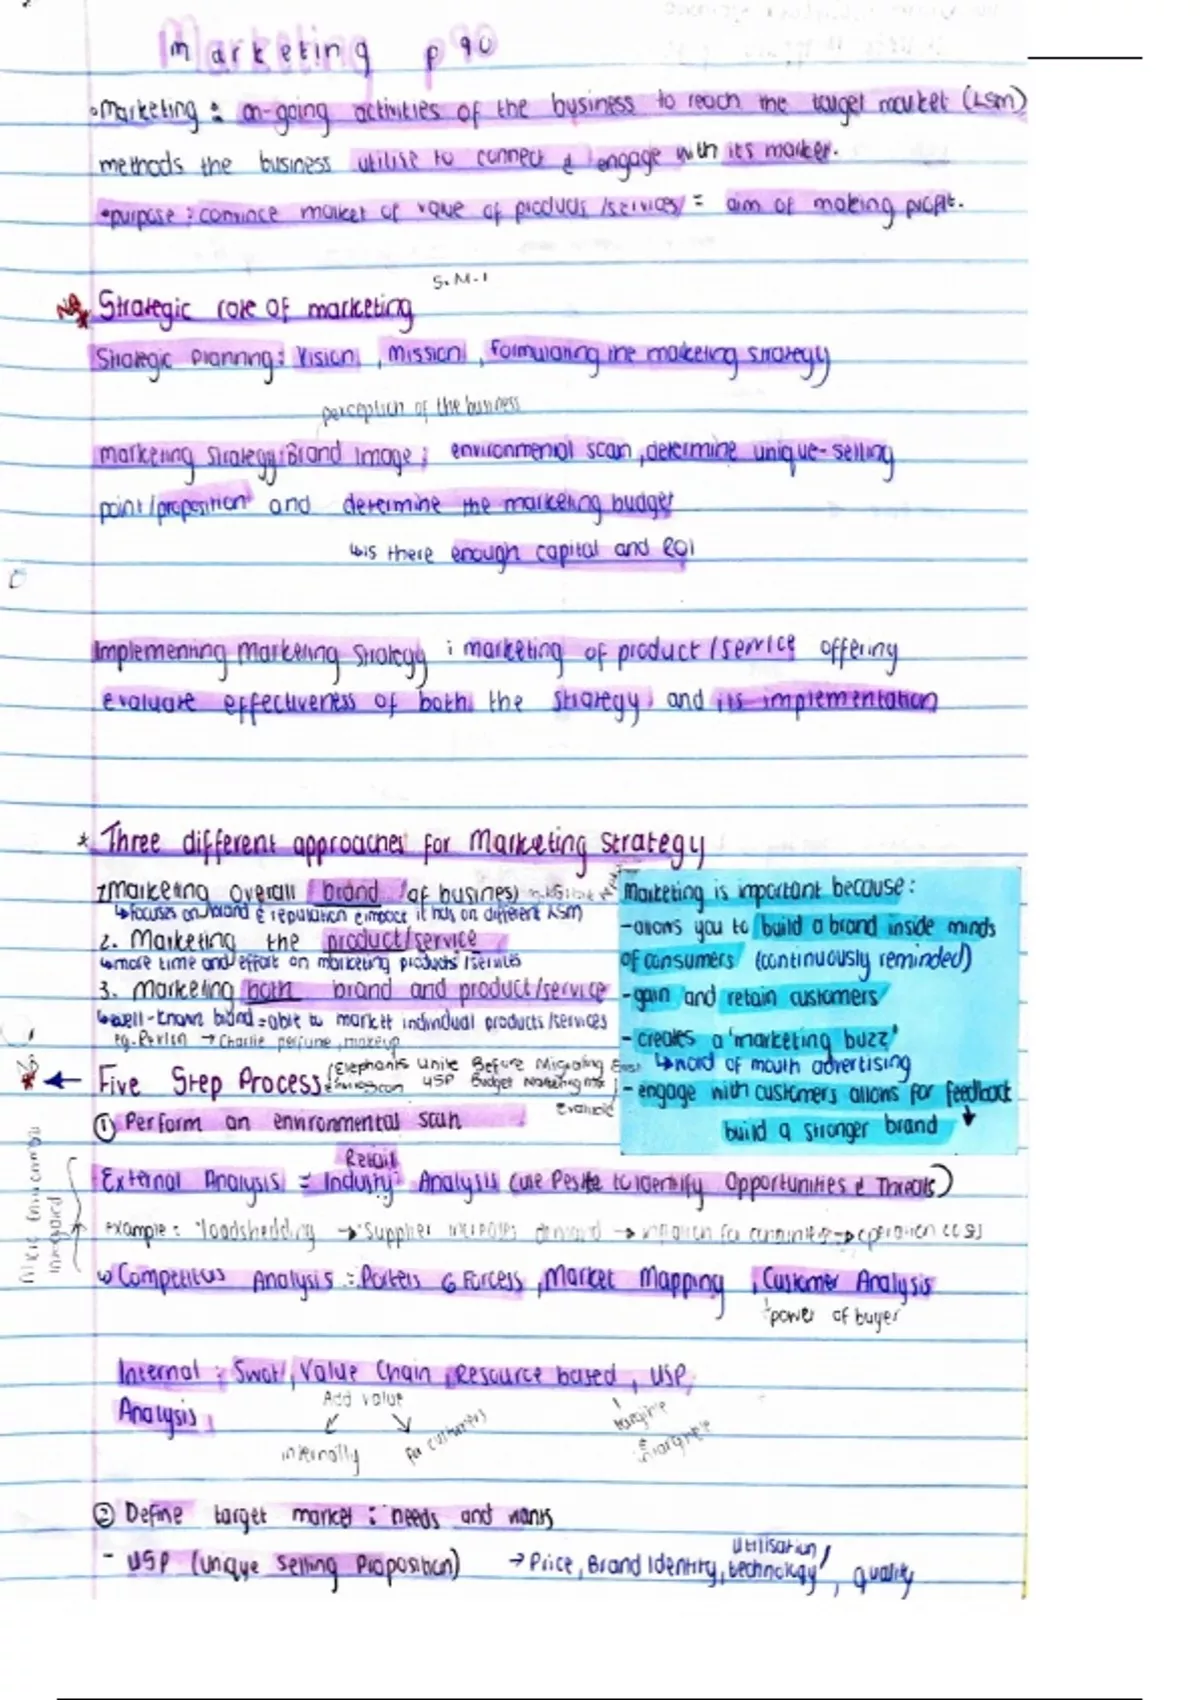 Marketing p90
• Marketing : on-going activities of the business to reach the target market (LSM)
methods the business utilise to connect & engage with its market.
• purpose : convince market of value of products /services = aim of making profit.
S.M.I
NB * Strategic role of marketing
Strategic planning : Vision , Mission , formulating the marketing strategy
perception of the business
marketing strategy : Brand Image ; environmental scan , determine unique-selling
point / proposition and determine the marketing budget
↳ is there enough capital and ROI
Implementing Marketing Strategy : marketing of product / service offering
evaluate effectiveness of both the strategy and its implementation
* Three different approaches for Marketing Strategy
1. Marketing overall brand of business
↳ focuses on brand & reputation & impact it has on different LSM
2. Marketing the product/service
↳ more time and effort on marketing products /services
3. Marketing both brand and product/service
↳ well-known brand = able to market individual products /services
eg. Revlon → Charlie perfume , makeup
Marketing is important because :
- allows you to build a brand inside minds
of consumers (continuously reminded)
- gain and retain customers
- creates a 'marketing buzz'
↳ word of mouth advertising
- engage with customers allows for feedback
↓
build a stronger brand
NB * ← Five Step Process
Elephants Unite Before Migrating East
Enviroscan USP Budget Marketing mix
Evaluate
① Perform an environmental scan
Retail
External Analysis = Industry Analysis (use Pestle to identify Opportunities & Threats)
example : loadshedding → supplier increases demand → inflation for → operation costs
↳ Competitors Analysis : Porters 6 Forcess , Market Mapping , Customer Analysis
↳ power of buyer
Internal : Swot , Value Chain , Resource based , USP
Analysis
Add value
internally
for customers
tangible
& intangible
② Define target market : needs and wants
- USP (unique selling proposition) → Price , Brand Identity , utilisation / technology , quality